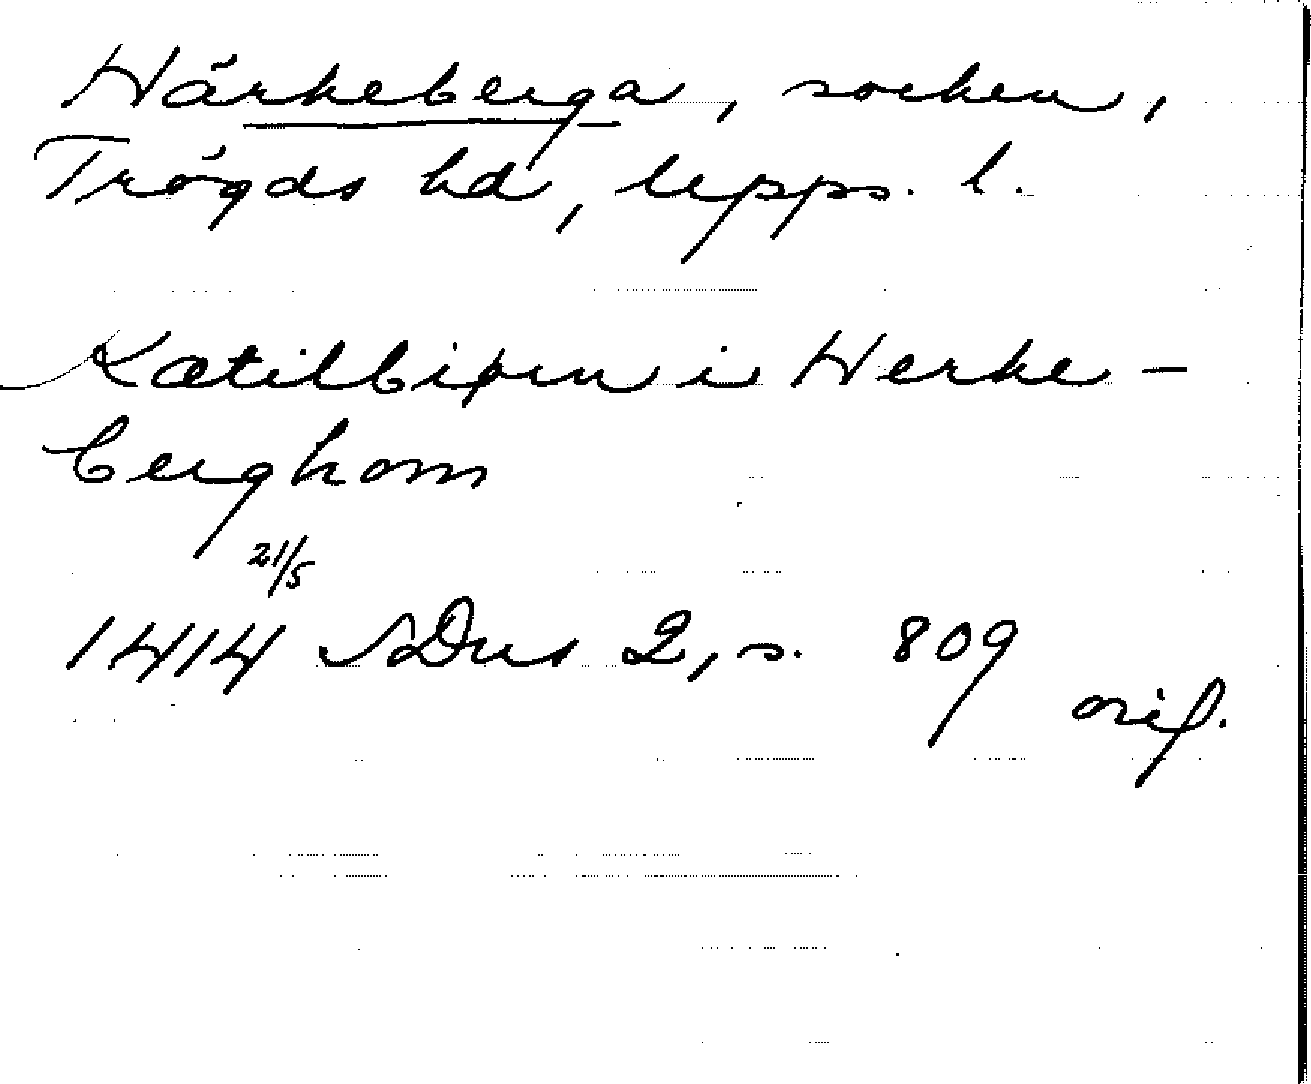 Härkeberga, socken,
Trögds hd, Upps. l.
Kætilbiørn i Herke-
berghom
21/5
1414 SDns 2, s. 809
orig.